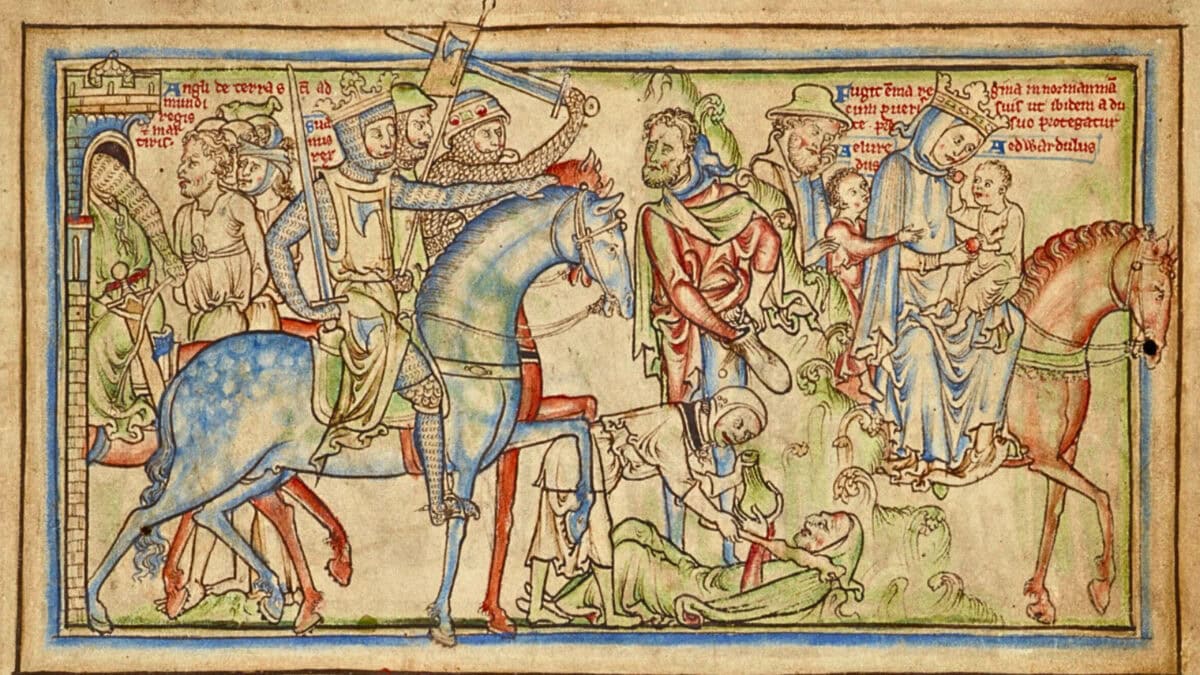 Angli de terra s
mundi
regis
⁊ mar
tiris.
Sua
nus
rex
Fugit ēma regina in normanniā
cum pueris suis ut ibidem a du
ce suo protegatur
Aelure
dus
Aedwardulus